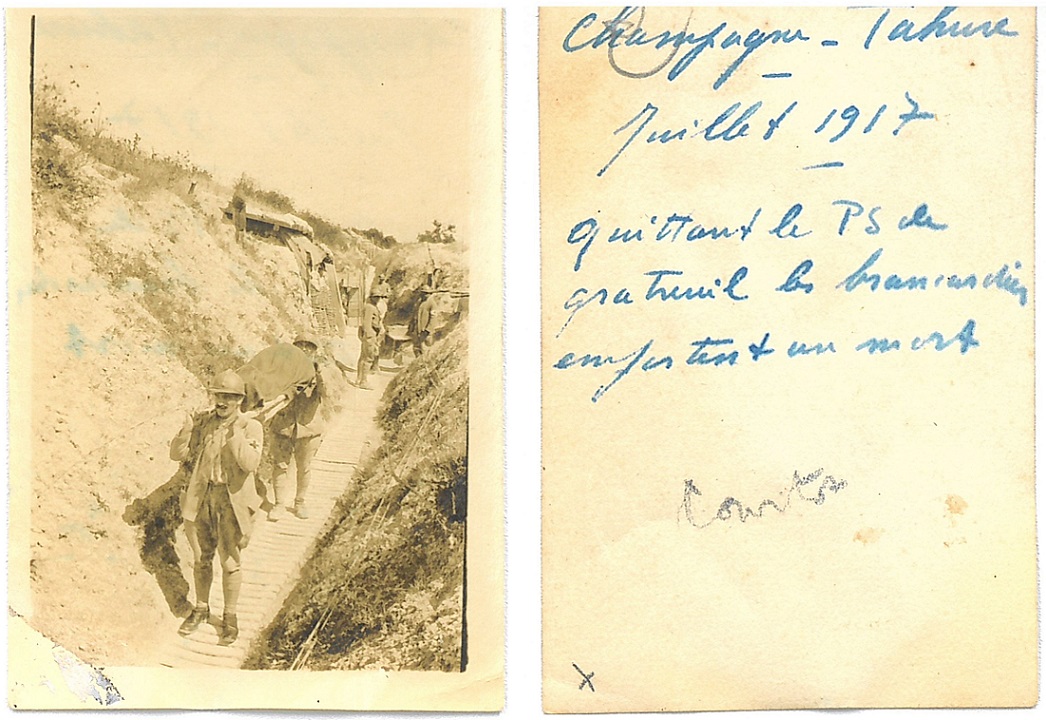 Champagne - Tahure
Juillet 1917
quittant le PS de
gratreuil les brancardiers
emportent un mort
X